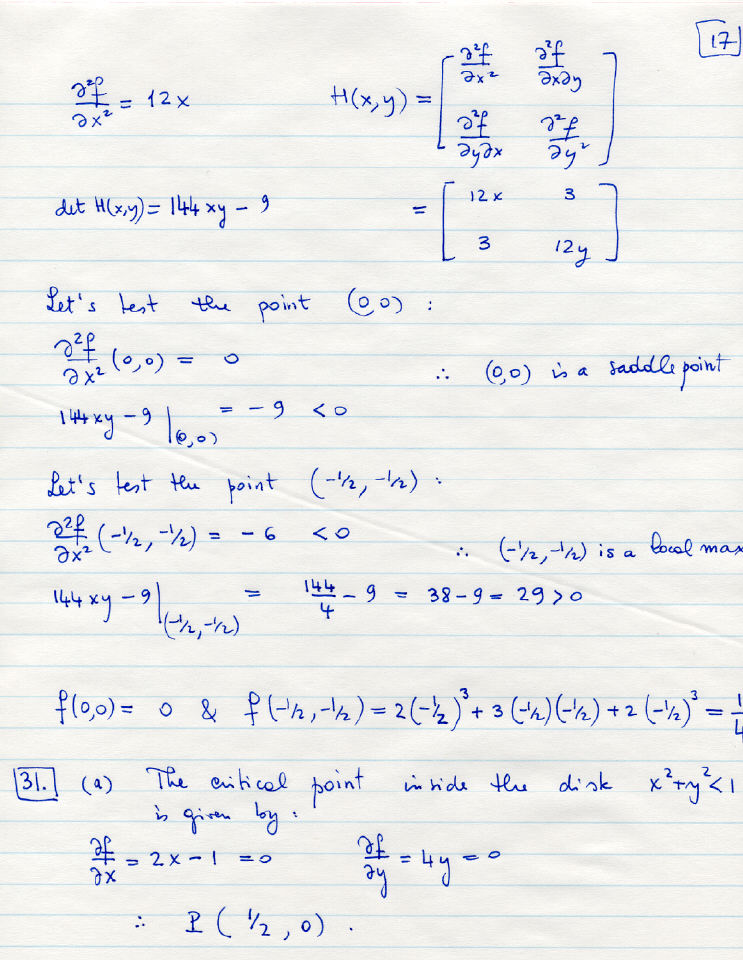 17
∂²f/∂x² = 12x    H(x,y) = [ ∂²f/∂x²  ∂²f/∂x∂y ; ∂²f/∂y∂x  ∂²f/∂y² ]
det H(x,y) = 144xy - 9    = [ 12x  3 ; 3  12y ]
Let's test the point (0,0) :
∂²f/∂x² (0,0) = 0    ∴ (0,0) is a saddle point
144xy - 9 |(0,0) = -9 < 0
Let's test the point (-1/2, -1/2) :
∂²f/∂x² (-1/2, -1/2) = -6 < 0    ∴ (-1/2, -1/2) is a local max
144xy - 9 |(-1/2, -1/2) = 144/4 - 9 = 38 - 9 = 29 > 0
f(0,0) = 0 & f(-1/2, -1/2) = 2(-1/2)³ + 3(-1/2)(-1/2) + 2(-1/2)³ = 1/4
31. (a) The critical point inside the disk x²+y²<1
is given by :
∂f/∂x = 2x - 1 = 0    ∂f/∂y = 4y = 0
∴ P (1/2, 0).